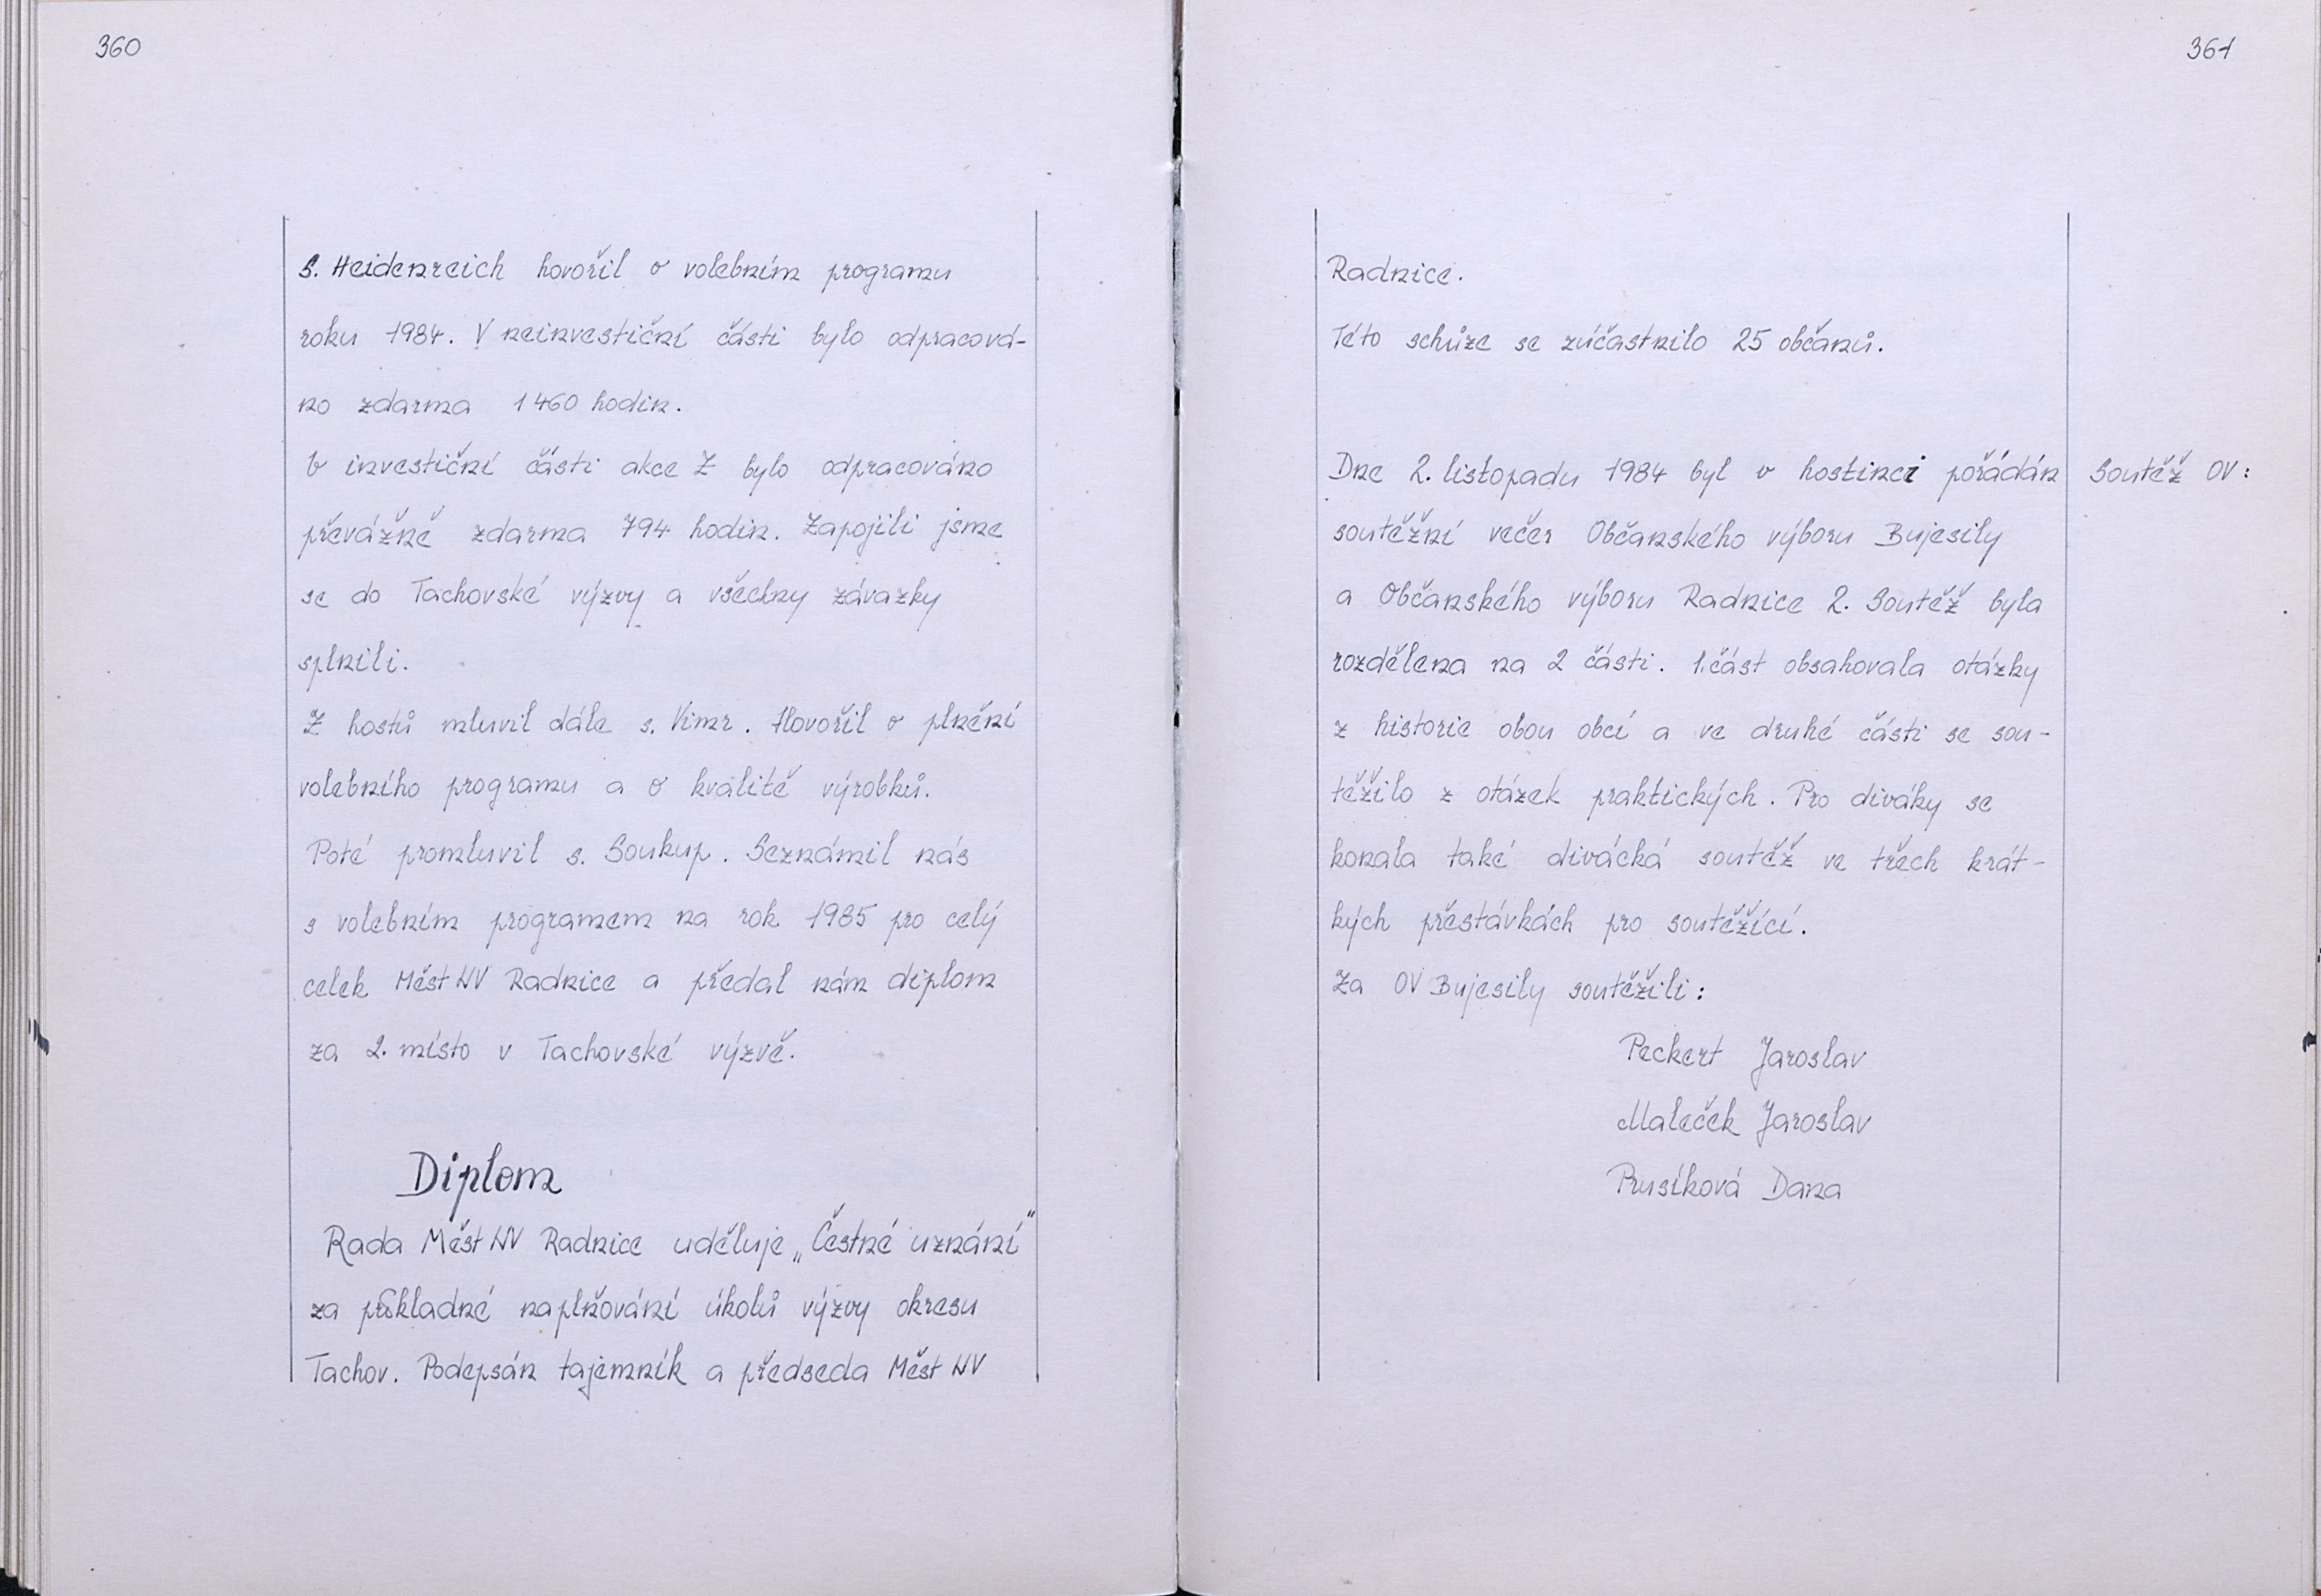 360
S. Heidenreich hovořil o volebním programu
roku 1984. V neinvestiční části bylo odpracová-
no zdarma 1460 hodin.
V investiční části akce Z bylo odpracováno
převážně zdarma 794 hodin. Zapojili jsme
se do Tachovské výzvy a všechny závazky
splnili.
Z hostů mluvil dále s. Vimr. Hovořil o plnění
volebního programu a o kvalitě výrobků.
Poté promluvil s. Soukup. Seznámil nás
s volebním programem na rok 1985 pro celý
celek Měst NV Radnice a předal nám diplom
za 2. místo v Tachovské výzvě.
Diplom
Rada Měst NV Radnice uděluje „Čestné uznání“
za příkladné naplňování úkolů výzvy okresu
Tachov. Podepsán tajemník a předseda Měst NV
361
Radnice.
Této schůze se zúčastnilo 25 občanů.
Dne 2. listopadu 1984 byl v hostinci pořádán
Soutěž OV:
soutěžní večer Občanského výboru Bujesily
a Občanského výboru Radnice 2. Soutěž byla
rozdělena na 2 části. 1. část obsahovala otázky
z historie obou obcí a ve druhé části se sou-
těžilo z otázek praktických. Pro diváky se
konala také divácká soutěž ve třech krát-
kých přestávkách pro soutěžící.
Za OV Bujesily soutěžili:
Peckert Jaroslav
Maleček Jaroslav
Prusíková Dana